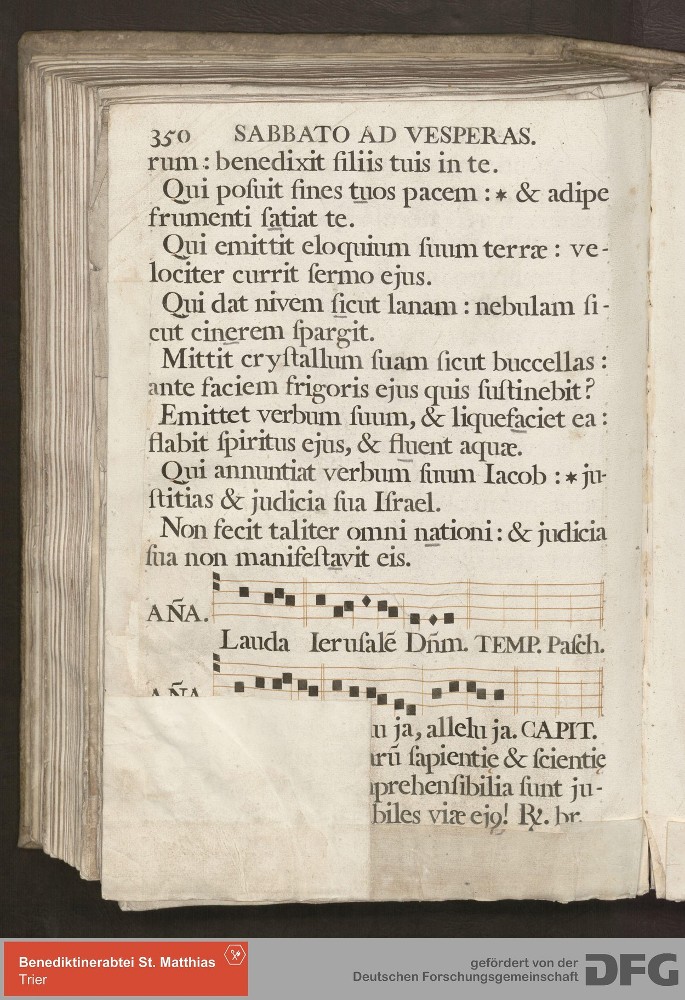 350 SABBATO AD VESPERAS.
rum : benedixit filiis tuis in te.
Qui poſuit fines tuos pacem : * & adipe
frumenti ſatiat te.
Qui emittit eloquium ſuum terræ : ve-
lociter currit ſermo ejus.
Qui dat nivem ſicut lanam : nebulam ſi-
cut cinerem ſpargit.
Mittit cryſtallum ſuam ſicut buccellas :
ante faciem frigoris ejus quis ſuſtinebit?
Emittet verbum ſuum, & liquefaciet ea :
flabit ſpiritus ejus, & fluent aquæ.
Qui annuntiat verbum ſuum Iacob : * ju-
ſtitias & judicia ſua Iſrael.
Non fecit taliter omni nationi : & judicia
ſua non manifeſtavit eis.
AÑA.
Lauda Ieruſalē Dñm. TEMP. Paſch.
AÑA
lu ja, allelu ja. CAPIT.
arū ſapientię & ſcientię
prehenſibilia ſunt ju-
biles viæ ejꝯ! ℟. br.
Benediktinerabtei St. Matthias
Trier
gefördert von der
Deutschen Forschungsgemeinschaft
DFG